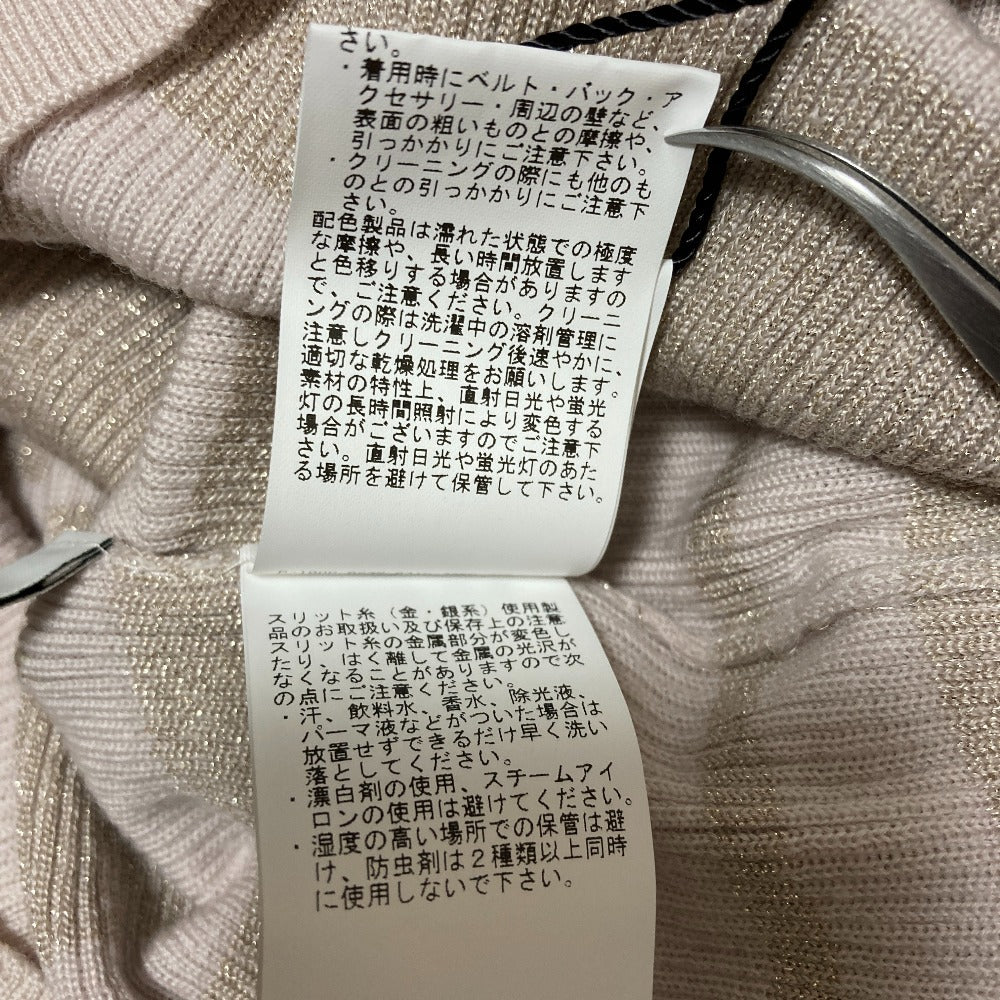 さい。
・着用時にベルト・バック・ア
クセサリー・周辺の壁など、
表面の粗いものとの摩擦や、
引っかかりにご注意下さい。
・クリーニングの際にも他のも
のとの引っかかりにご注意下
さい。
配色製品は濡れた状態での極度
な摩擦や、長い時間放置します
と色移りする場合がありますの
で、ご注意ください。クリーニ
ングの際は洗濯中の溶剤管理に
注意しクリーニング後速やかに、
適切な乾燥処理をお願いします。
素材の特性上、直射日光や蛍光
灯の長時間照射により変色する
場合がございますのでご注意下
さい。直射日光や蛍光灯のあた
る場所を避けて保管して下さい。
スリット糸（金・銀系）使用製
品のお取扱い及び保存上の注意
スリット糸の金属部分が変色し
たり、はく離して金属の光沢が
なくなることがありますので次
の点にご注意ください。
・汗、飲料水、香水、除光液、
パーマ液などがついた場合は
放置せずできるだけ早く洗い
落としてください。
・漂白剤の使用、スチームアイ
ロンの使用は避けてください。
・湿度の高い場所での保管は避
け、防虫剤は2種類以上同時
に使用しないで下さい。